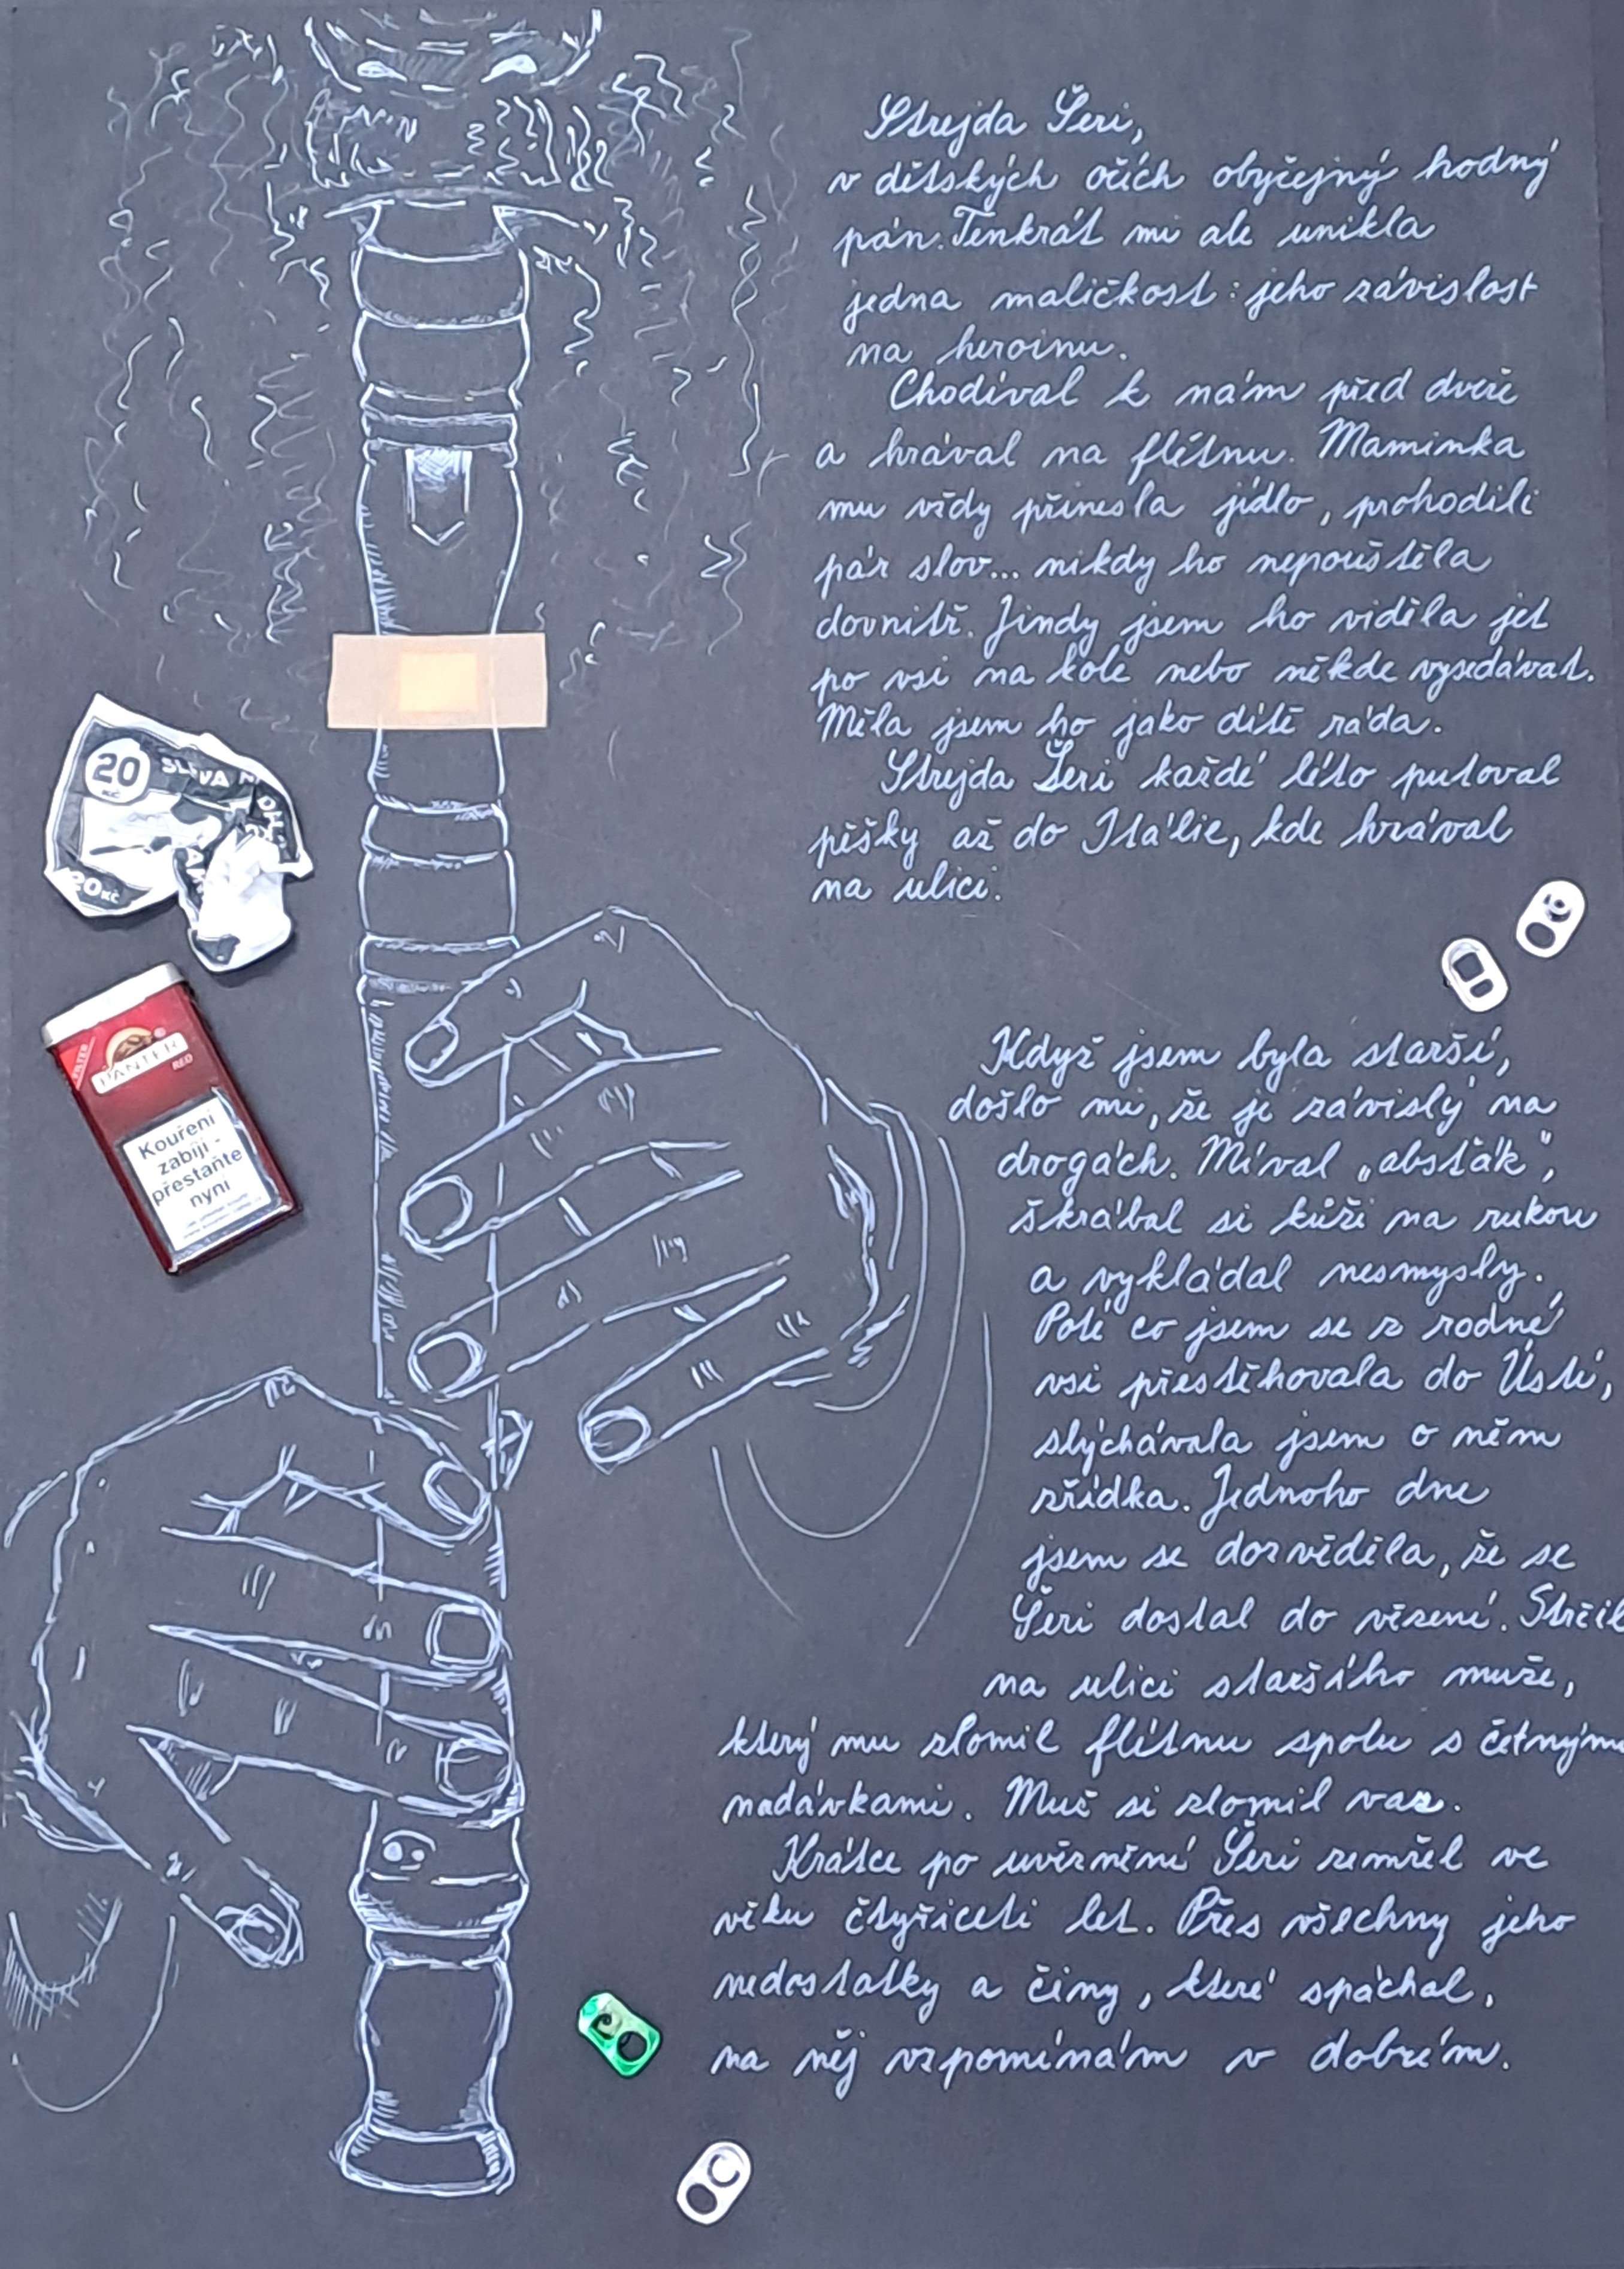 Strejda Šeri,
v dětských očích obyčejný hodný
pán. Tenkrát mi ale unikla
jedna maličkost: jeho závislost
na heroinu.
Chodíval k nám před dveře
a hrával na flétnu. Maminka
mu vždy přinesla jídlo, prohodili
pár slov... nikdy ho nepouštěla
dovnitř. Jindy jsem ho viděla jet
po vsi na kole nebo někde vysedávat.
Měla jsem ho jako dítě ráda.
Strejda Šeri každé léto putoval
pěšky až do Itálie, kde hrával
na ulici.
20
Kč
SLEVA N
20 Kč
PANTER
RED
FILTER
Kouření
zabíjí -
přestaňte
nyní
Když jsem byla starší,
došlo mi, že je závislý na
drogách. Míval „absťák“,
škrábal si kůži na rukou
a vykládal nesmysly.
Poté co jsem se z rodné
vsi přestěhovala do Ústí,
slýchávala jsem o něm
zřídka. Jednoho dne
jsem se dozvěděla, že se
Šeri dostal do vězení. Strčil
na ulici staršího muže,
který mu zlomil flétnu spolu s četnými
nadávkami. Muž si zlomil vaz.
Krátce po uvěznění Šeri zemřel ve
věku čtyřiceti let. Přes všechny jeho
nedostatky a činy, které spáchal,
na něj vzpomínám v dobrém.